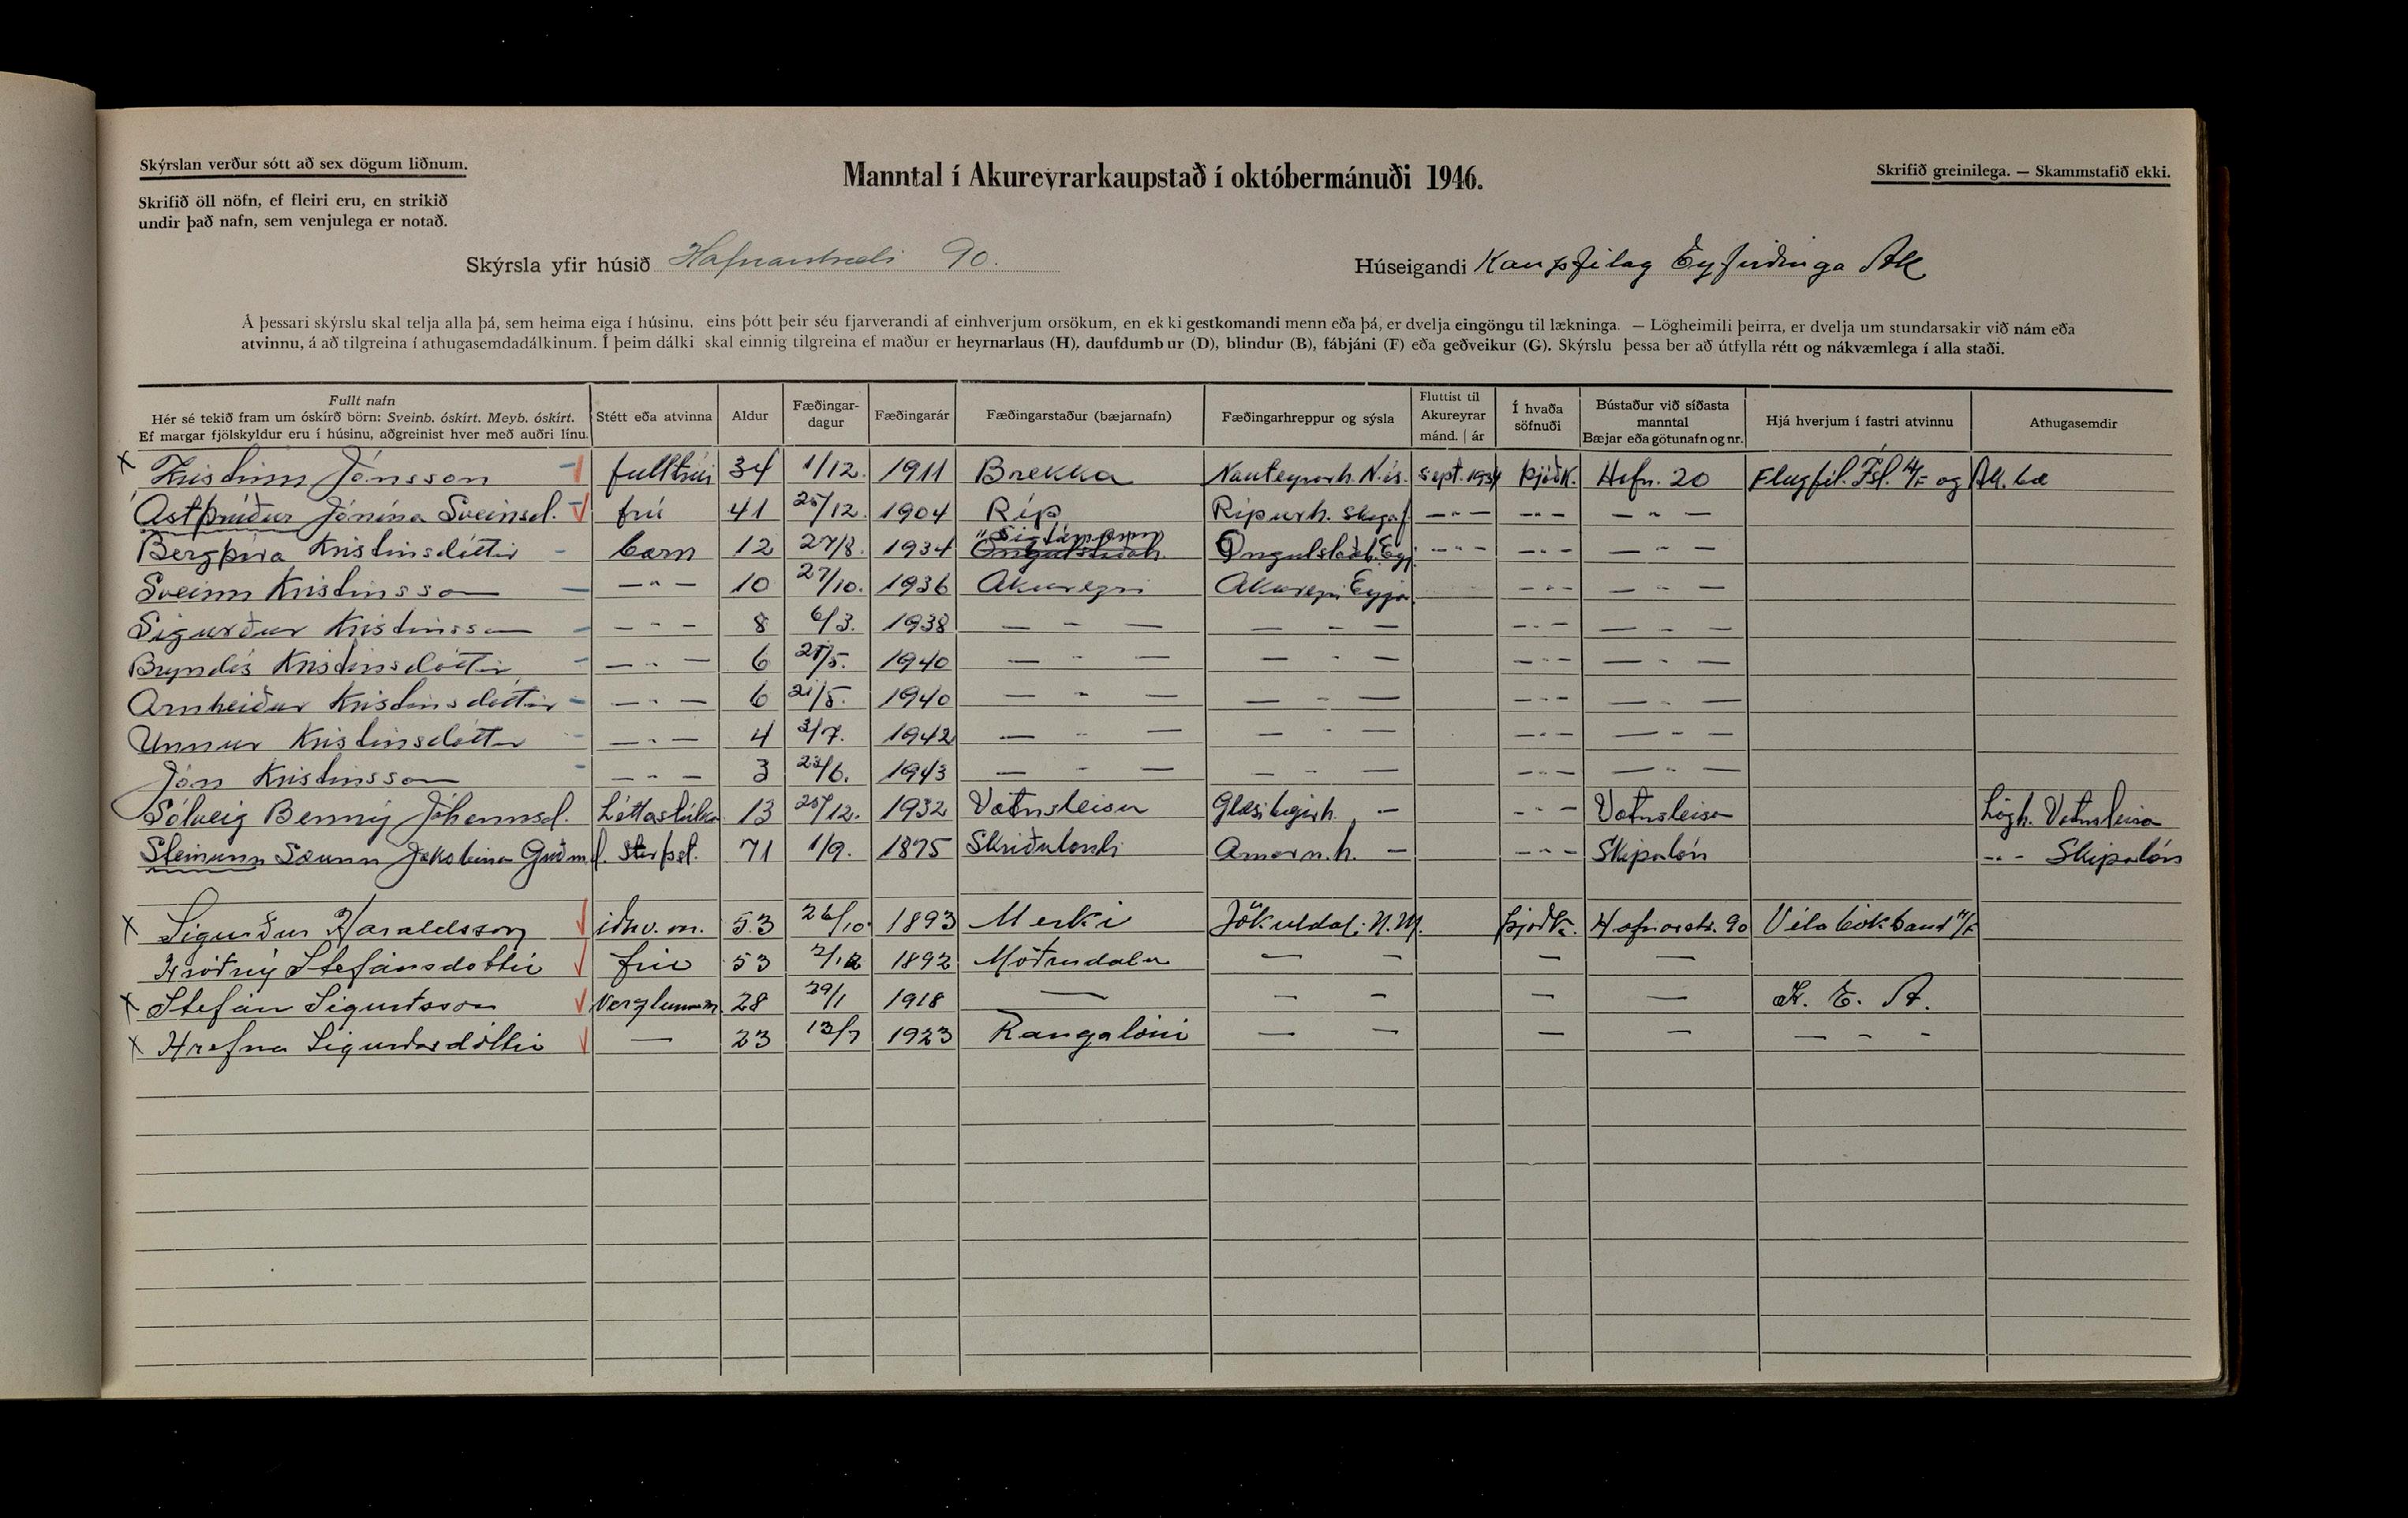 Skýrslan verður sótt að sex dögum liðnum.
Manntal í Akureyrarkaupstað í októbermánuði 1946.
Skrifið greinilega. — Skammstafið ekki.
Skrifið öll nöfn, ef fleiri eru, en strikið
undir það nafn, sem venjulega er notað.
Skýrsla yfir húsið Hafnarstræti 90.
Húseigandi Kaupfélag Eyfirðinga Ak
Á þessari skýrslu skal telja alla þá, sem heima eiga í húsinu, eins þótt þeir séu fjarverandi af einhverjum orsökum, en ekki gestkomandi menn eða þá, er dvelja eingöngu til lækninga. — Lögheimili þeirra, er dvelja um stundarsakir við nám eða
atvinnu, á að tilgreina í athugasemdadálkinum. Í þeim dálki skal einnig tilgreina ef maður er heyrnarlaus (H), daufdumbur (D), blindur (B), fábjáni (F) eða geðveikur (G). Skýrslu þessa ber að útfylla rétt og nákvæmlega í alla staði.
Fullt nafn
Hér sé tekið fram um óskírð börn: Sveinb. óskírt. Meyb. óskírt.
Ef margar fjölskyldur eru í húsinu, aðgreinist hver með auðri línu.
Stétt eða atvinna
Aldur
Fæðingar-
dagur
Fæðingarár
Fæðingarstaður (bæjarnafn)
Fæðingarhreppur og sýsla
Fluttist til
Akureyrar
mánd. | ár
Í hvaða
söfnuði
Bústaður við síðasta
manntal
Bæjar eða götunafn og nr.
Hjá hverjum í fastri atvinnu
Athugasemdir
x Kristinn Jónsson fulltrúi 34 1/12. 1911 Brekka Nauteyrarh. N.ís. Sept. 1934 Þjóðk. Hafn. 20 Flugfél. Ísl. H/F og Ak. bæ
Ástþrúður Jónína Sveinsd. frú 41 25/12. 1904 Ríp Rípurh. Skagaf — " — — " — — " —
Bergþóra Kristinsdóttir barn 12 27/8. 1934 Sigtúnum Öngulstaðah. Eyj. — " — — " — — " —
Sveinn Kristinsson — " — 10 27/10. 1936 Akureyri Akureyri Eyja. — " — — " —
Sigurður Kristinsson — " — 8 6/3. 1938 — " — — " — — " — — " —
Bryndís Kristinsdóttir — " — 6 21/5. 1940 — " — — " — — " — — " —
Arnheiður Kristinsdóttir — " — 6 21/5. 1940 — " — — " — — " — — " —
Unnur Kristinsdóttir — " — 4 3/7. 1942 — " — — " — — " — — " —
Jón Kristinsson — " — 3 23/6. 1943 — " — — " — — " — — " —
Sólveig Benný Jóhannsd. Léttastúlka 13 25/12. 1932 Vatnsleisu Glæsibæjarh. — — " — Vatnsleisa Lögh. Vatnsleisa
Steinunn Sæunn Jakobína Guðm.d. 71 1/9. 1875 Skriðulandi Arnarn.h. — — " — Skipalón — " — Skipalón
x Sigurður Haraldsson iðnv.m. 53 26/10. 1893 Merki Jökuldal. N.M. Þjóðk. Hafnarstr. 90 Véla bókband H/F
Hróðný Stefánsdóttir frú 53 2/12 1892 Möðrudalur — — — —
x Stefán Sigurðsson Verzlunarm. 28 29/1 1918 — — — — — K. E. A.
x Hrefna Sigurðardóttir — 23 13/7 1923 Rangalóni — — — — — " —